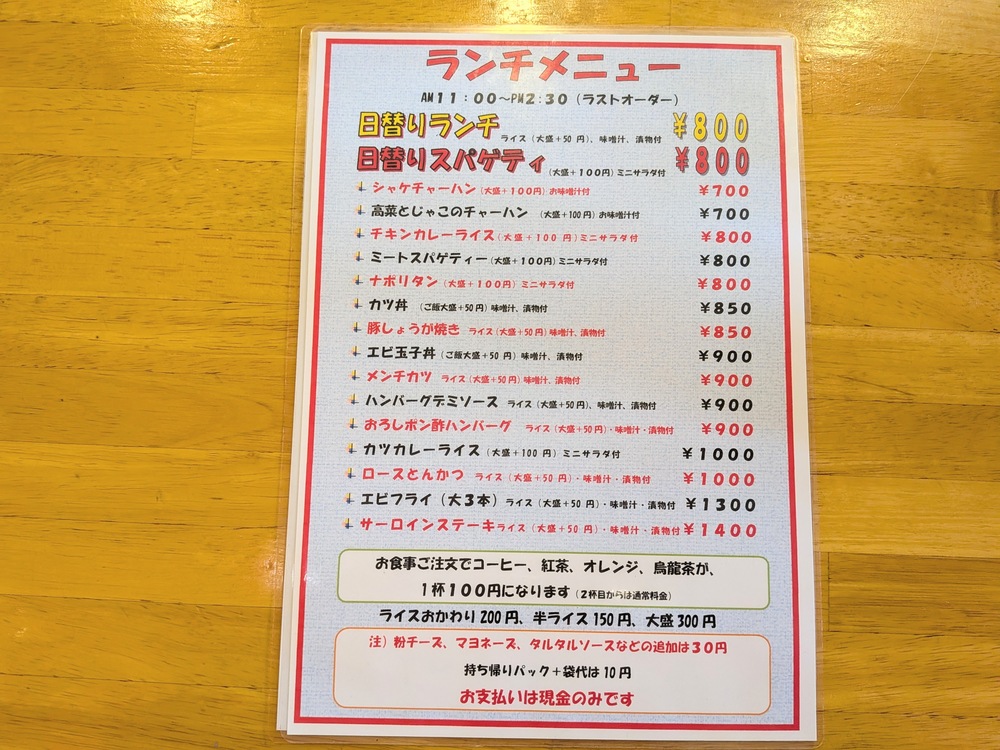 ランチメニュー
AM11:00〜PM2:30（ラストオーダー）
日替りランチ ライス（大盛+50円)、味噌汁、漬物付 ¥800
日替りスパゲティ（大盛+100円）ミニサラダ付 ¥800
シャケチャーハン（大盛+100円）お味噌汁付 ¥700
高菜とじゃこのチャーハン （大盛+100円）お味噌汁付 ¥700
チキンカレーライス（大盛+100円）ミニサラダ付 ¥800
ミートスパゲティー（大盛+100円）ミニサラダ付 ¥800
ナポリタン（大盛+100円）ミニサラダ付 ¥800
カツ丼 （ご飯大盛+50円）味噌汁、漬物付 ¥850
豚しょうが焼き ライス（大盛+50円）味噌汁、漬物付 ¥850
エビ玉子丼（ご飯大盛+50円）味噌汁、漬物付 ¥900
メンチカツ ライス（大盛+50円）味噌汁、漬物付 ¥900
ハンバーグデミソース ライス（大盛+50円)、味噌汁、漬物付 ¥900
おろしポン酢ハンバーグ ライス（大盛+50円）・味噌汁・漬物付 ¥900
カツカレーライス（大盛+100円）ミニサラダ付 ¥1000
ロースとんかつ ライス（大盛+50円）・味噌汁・漬物付 ¥1000
エビフライ（大3本）ライス（大盛+50円）・味噌汁・漬物付 ¥1300
サーロインステーキライス（大盛+50円）・味噌汁・漬物付 ¥1400
お食事ご注文でコーヒー、紅茶、オレンジ、烏龍茶が、
1杯100円になります（2杯目からは通常料金）
ライスおかわり200円、半ライス150円、大盛300円
注）粉チーズ、マヨネーズ、タルタルソースなどの追加は30円
持ち帰りパック+袋代は10円
お支払いは現金のみです